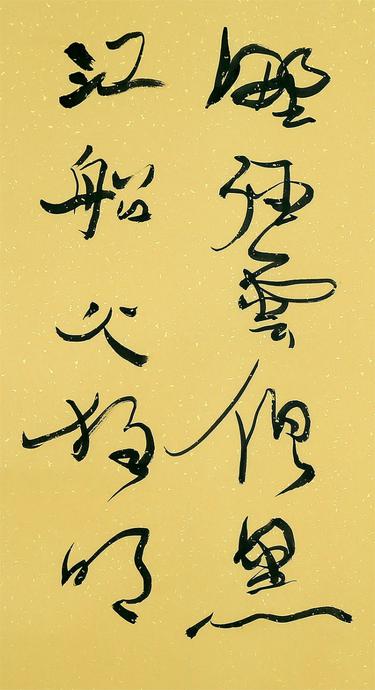 野径雲俱黑
江船火独明